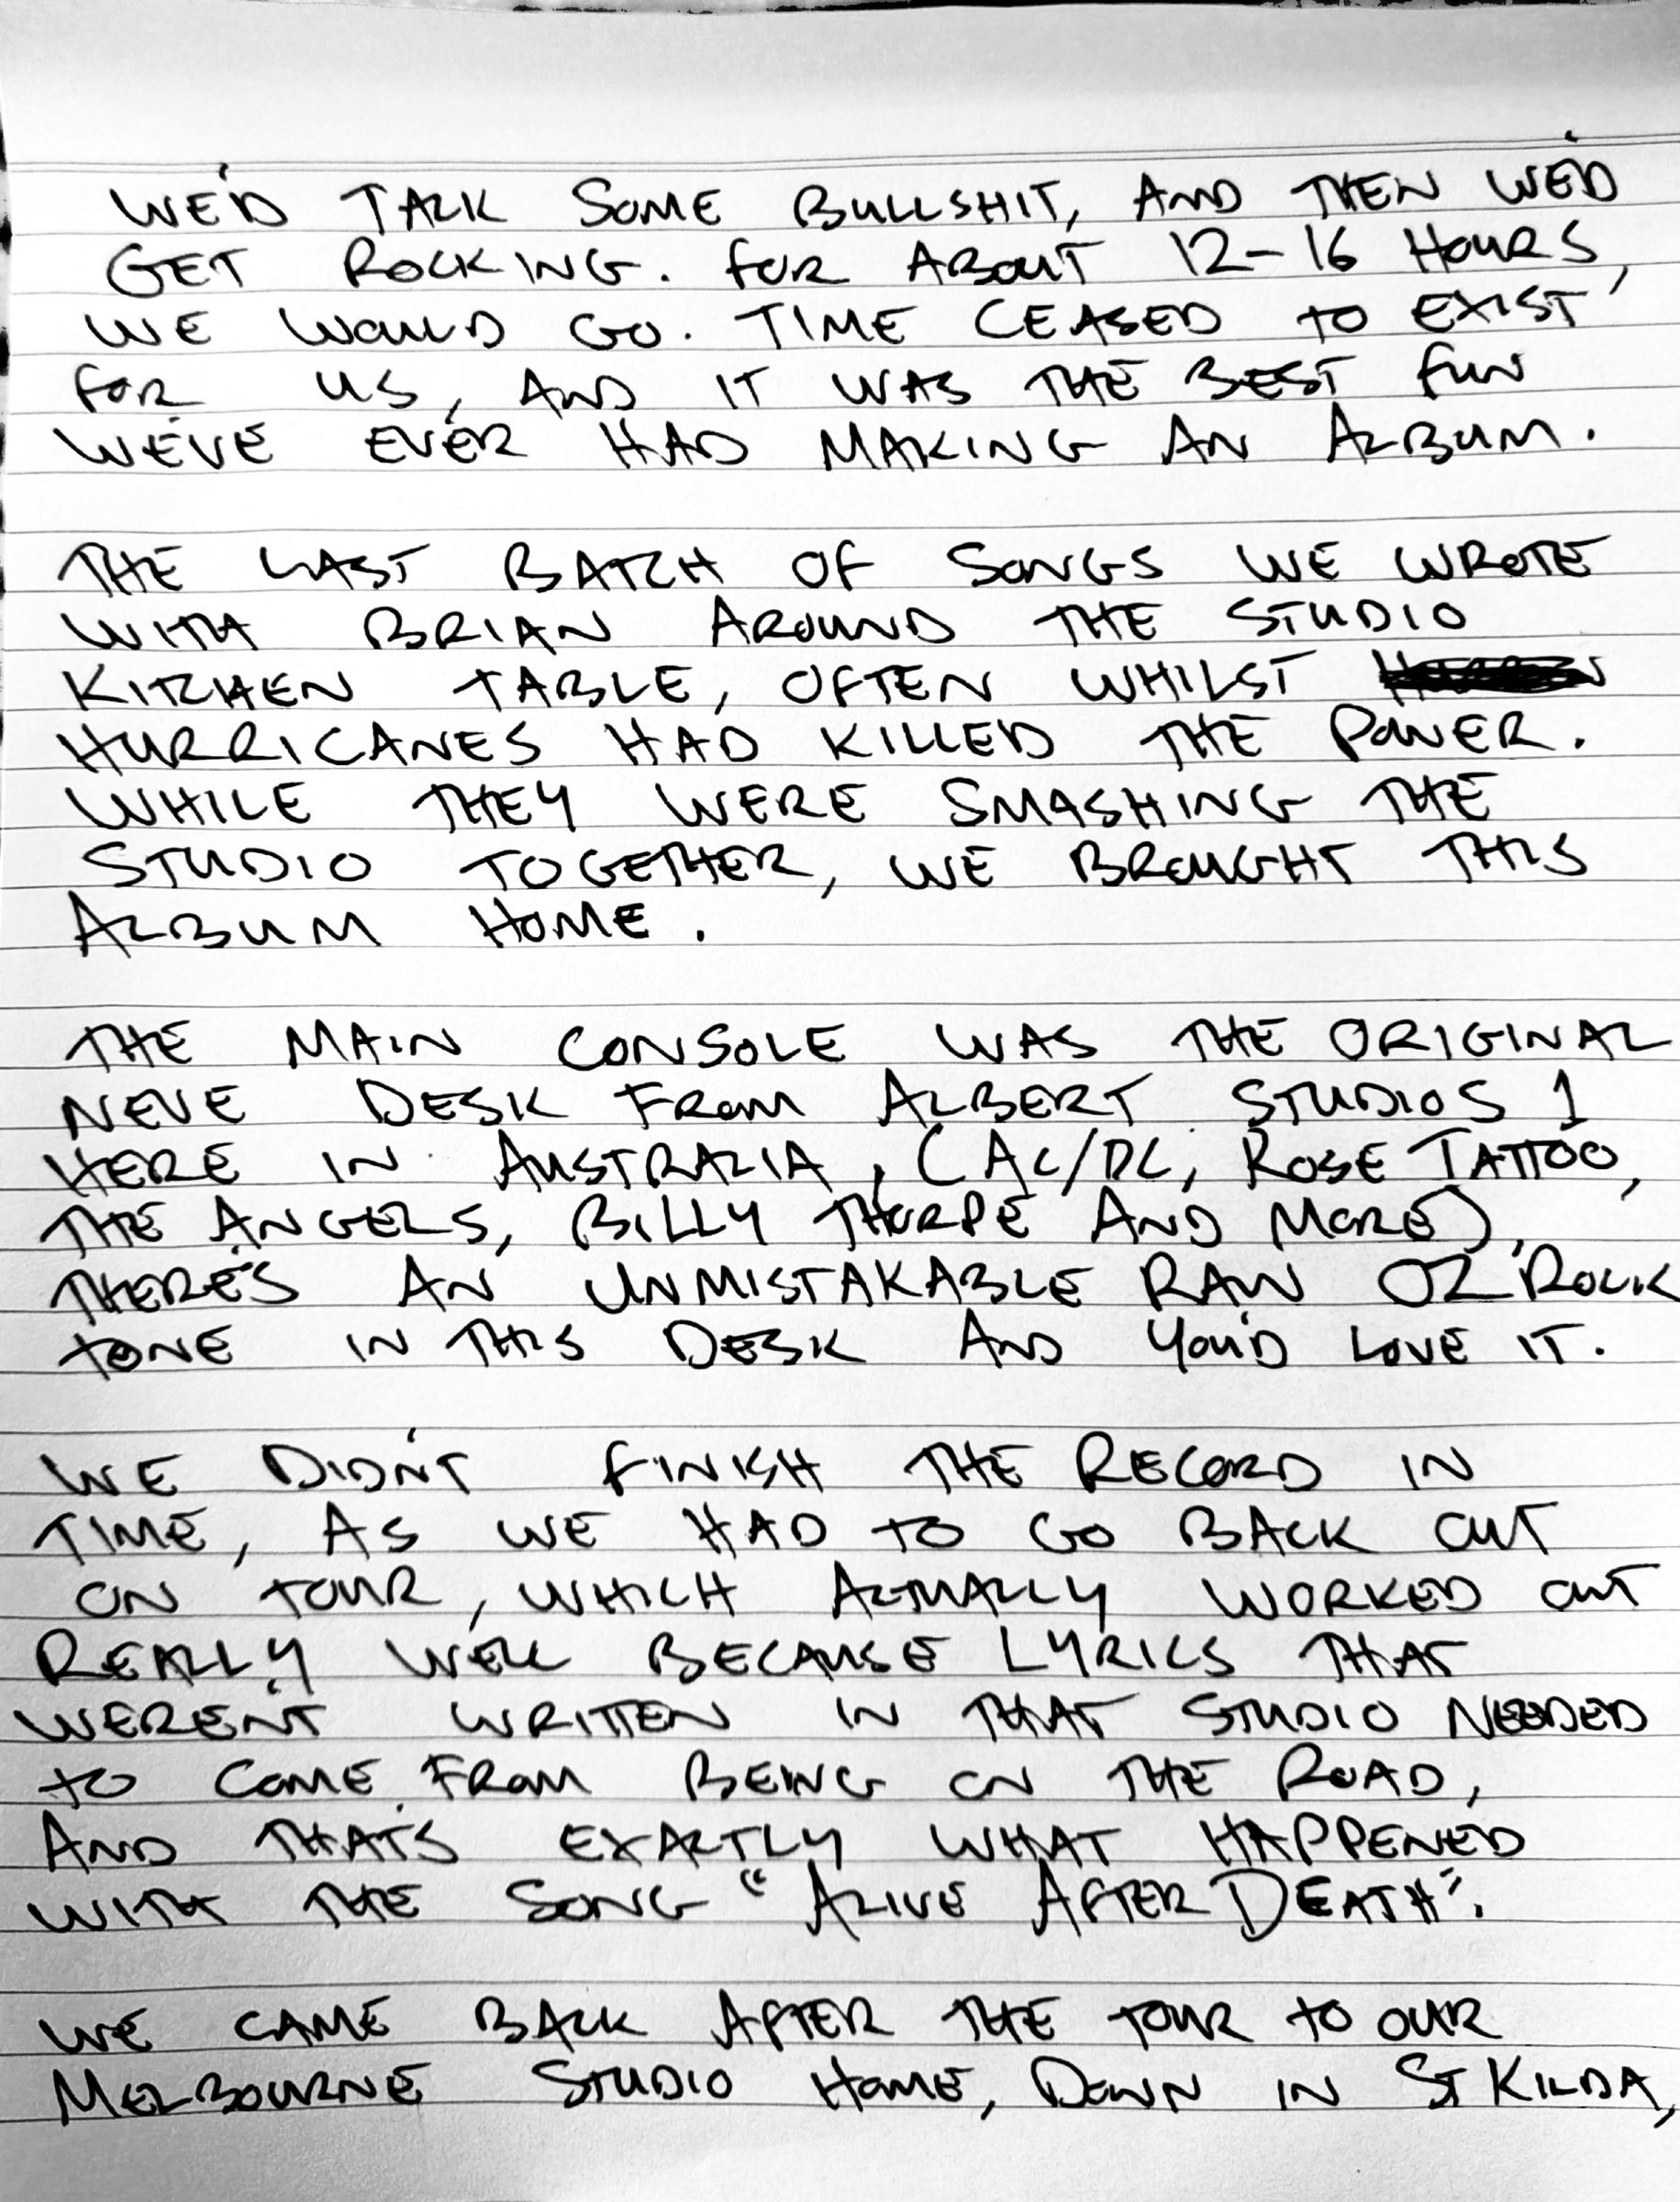 WE'D TALK SOME BULLSHIT, AND THEN WE'D
GET ROCKING. FOR ABOUT 12-16 HOURS,
WE WOULD GO. TIME CEASED TO EXIST
FOR US, AND IT WAS THE BEST FUN
WE'VE EVER HAD MAKING AN ALBUM.

THE LAST BATCH OF SONGS WE WROTE
WITH BRIAN AROUND THE STUDIO
KITCHEN TABLE, OFTEN WHILST
HURRICANES HAD KILLED THE POWER.
WHILE THEY WERE SMASHING THE
STUDIO TOGETHER, WE BROUGHT THIS
ALBUM HOME.

THE MAIN CONSOLE WAS THE ORIGINAL
NEVE DESK FROM ALBERT STUDIOS 1
HERE IN AUSTRALIA, (AC/DC, ROSE TATTOO,
THE ANGELS, BILLY THORPE AND MORE),
THERE'S AN UNMISTAKABLE RAW OZ ROCK
TONE IN THIS DESK AND YOU'D LOVE IT.

WE DIDN'T FINISH THE RECORD IN
TIME, AS WE HAD TO GO BACK OUT
ON TOUR, WHICH ACTUALLY WORKED OUT
REALLY WELL BECAUSE LYRICS THAT
WEREN'T WRITTEN IN THAT STUDIO NEEDED
TO COME FROM BEING ON THE ROAD,
AND THAT'S EXACTLY WHAT HAPPENED
WITH THE SONG "ALIVE AFTER DEATH".

WE CAME BACK AFTER THE TOUR TO OUR
MELBOURNE STUDIO HOME, DOWN IN ST KILDA,